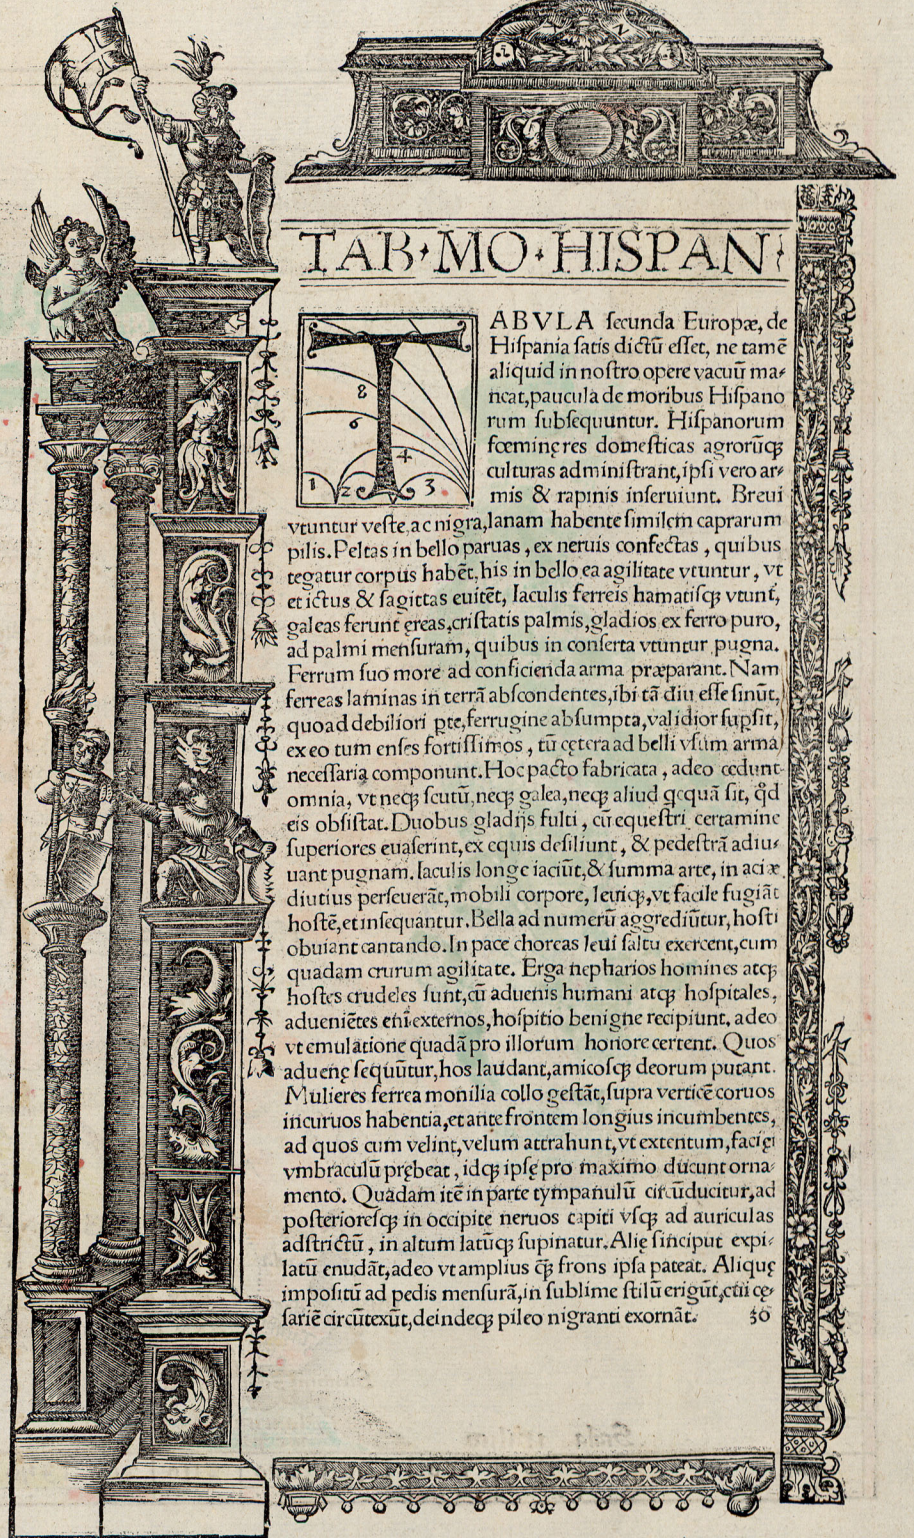 TAB·MO·HISPAN
TABVLA ſecunda Europæ, de
Hiſpania ſatis dictū eſſet, ne tamē
aliquid in noſtro opere vacuū ma-
neat, paucula de moribus Hiſpano
rum ſubſequuntur. Hiſpanorum
fœminę res domeſticas agrorūqꝫ
culturas adminiſtrant, ipſi vero ar-
mis & rapinis inſeruiunt. Breui
8
6
4
1 2 3
vtuntur veſte, ac nigra, lanam habente ſimilem caprarum
pilis. Peltas in bello paruas, ex neruis confectas, quibus
tegatur corpus habēt, his in bello ea agilitate vtuntur, vt
et ictus & ſagittas euitēt, Iaculis ferreis hamatiſqꝫ vtunt̄,
galeas ferunt ęreas, criſtatis palmis, gladios ex ferro puro,
ad palmi menſuram, quibus in conſerta vtuntur pugna.
Ferrum ſuo more ad conficienda arma præparant. Nam
ferreas laminas in terrā abſcondentes, ibi tā diu eſſe ſinūt,
quoad debiliori ꝑte, ferrugine abſumpta, validior ſupſit,
ex eo tum enſes fortiſſimos, tū cętera ad belli vſum arma
neceſſaria componunt. Hoc pacto fabricata, adeo cedunt
omnia, vt neqꝫ ſcutū, neqꝫ galea, neqꝫ aliud qcquā ſit, qd̄
eis obſiſtat. Duobus gladijs fulti, cū equeſtri certamine
ſuperiores euaſerint, ex equis deſiliunt, & pedeſtrā adiu-
uant pugnam. Iaculis longe iaciūt, & ſumma arte, in acie
diutius perſeuerāt, mobili corpore, leuiqꝫ, vt facile fugiāt
hoſtē, et inſequantur. Bella ad numerū aggrediūtur, hoſti
obuiant cantando. In pace choreas leui ſaltu exercent, cum
quadam crurum agilitate. Erga nepharios homines atqꝫ
hoſtes crudeles ſunt, cū aduenis humani atqꝫ hoſpitales,
adueniētes eni̅ externos, hoſpitio benigne recipiunt, adeo
vt emulatione quadā pro illorum honore certent. Quos
aduenę ſequūtur, hos laudant, amicoſqꝫ deorum putant.
Mulieres ferrea monilia collo geſtāt, ſupra verticē coruos
incuruos habentia, et ante frontem longius incumbentes,
ad quos cum velint, velum attrahunt, vt extentum, faciei
vmbraculū prębeat, idqꝫ ipſę pro maximo ducunt orna-
mento. Quadam itē in parte tympanulū circūducitur, ad
poſterioreſqꝫ in occipite neruos capiti vſqꝫ ad auriculas
adſtrictū, in altum latūqꝫ ſupinatur. Alię ſinciput expi-
latū enudāt, adeo vt amplius q̄ꝫ frons ipſa pateat. Aliquę
impoſitū ad pedis menſurā, in ſublime ſtilū erigūt, ctii cę-
ſariē circūtexūt, deindeqꝫ pileo nigranti exornāt. 30